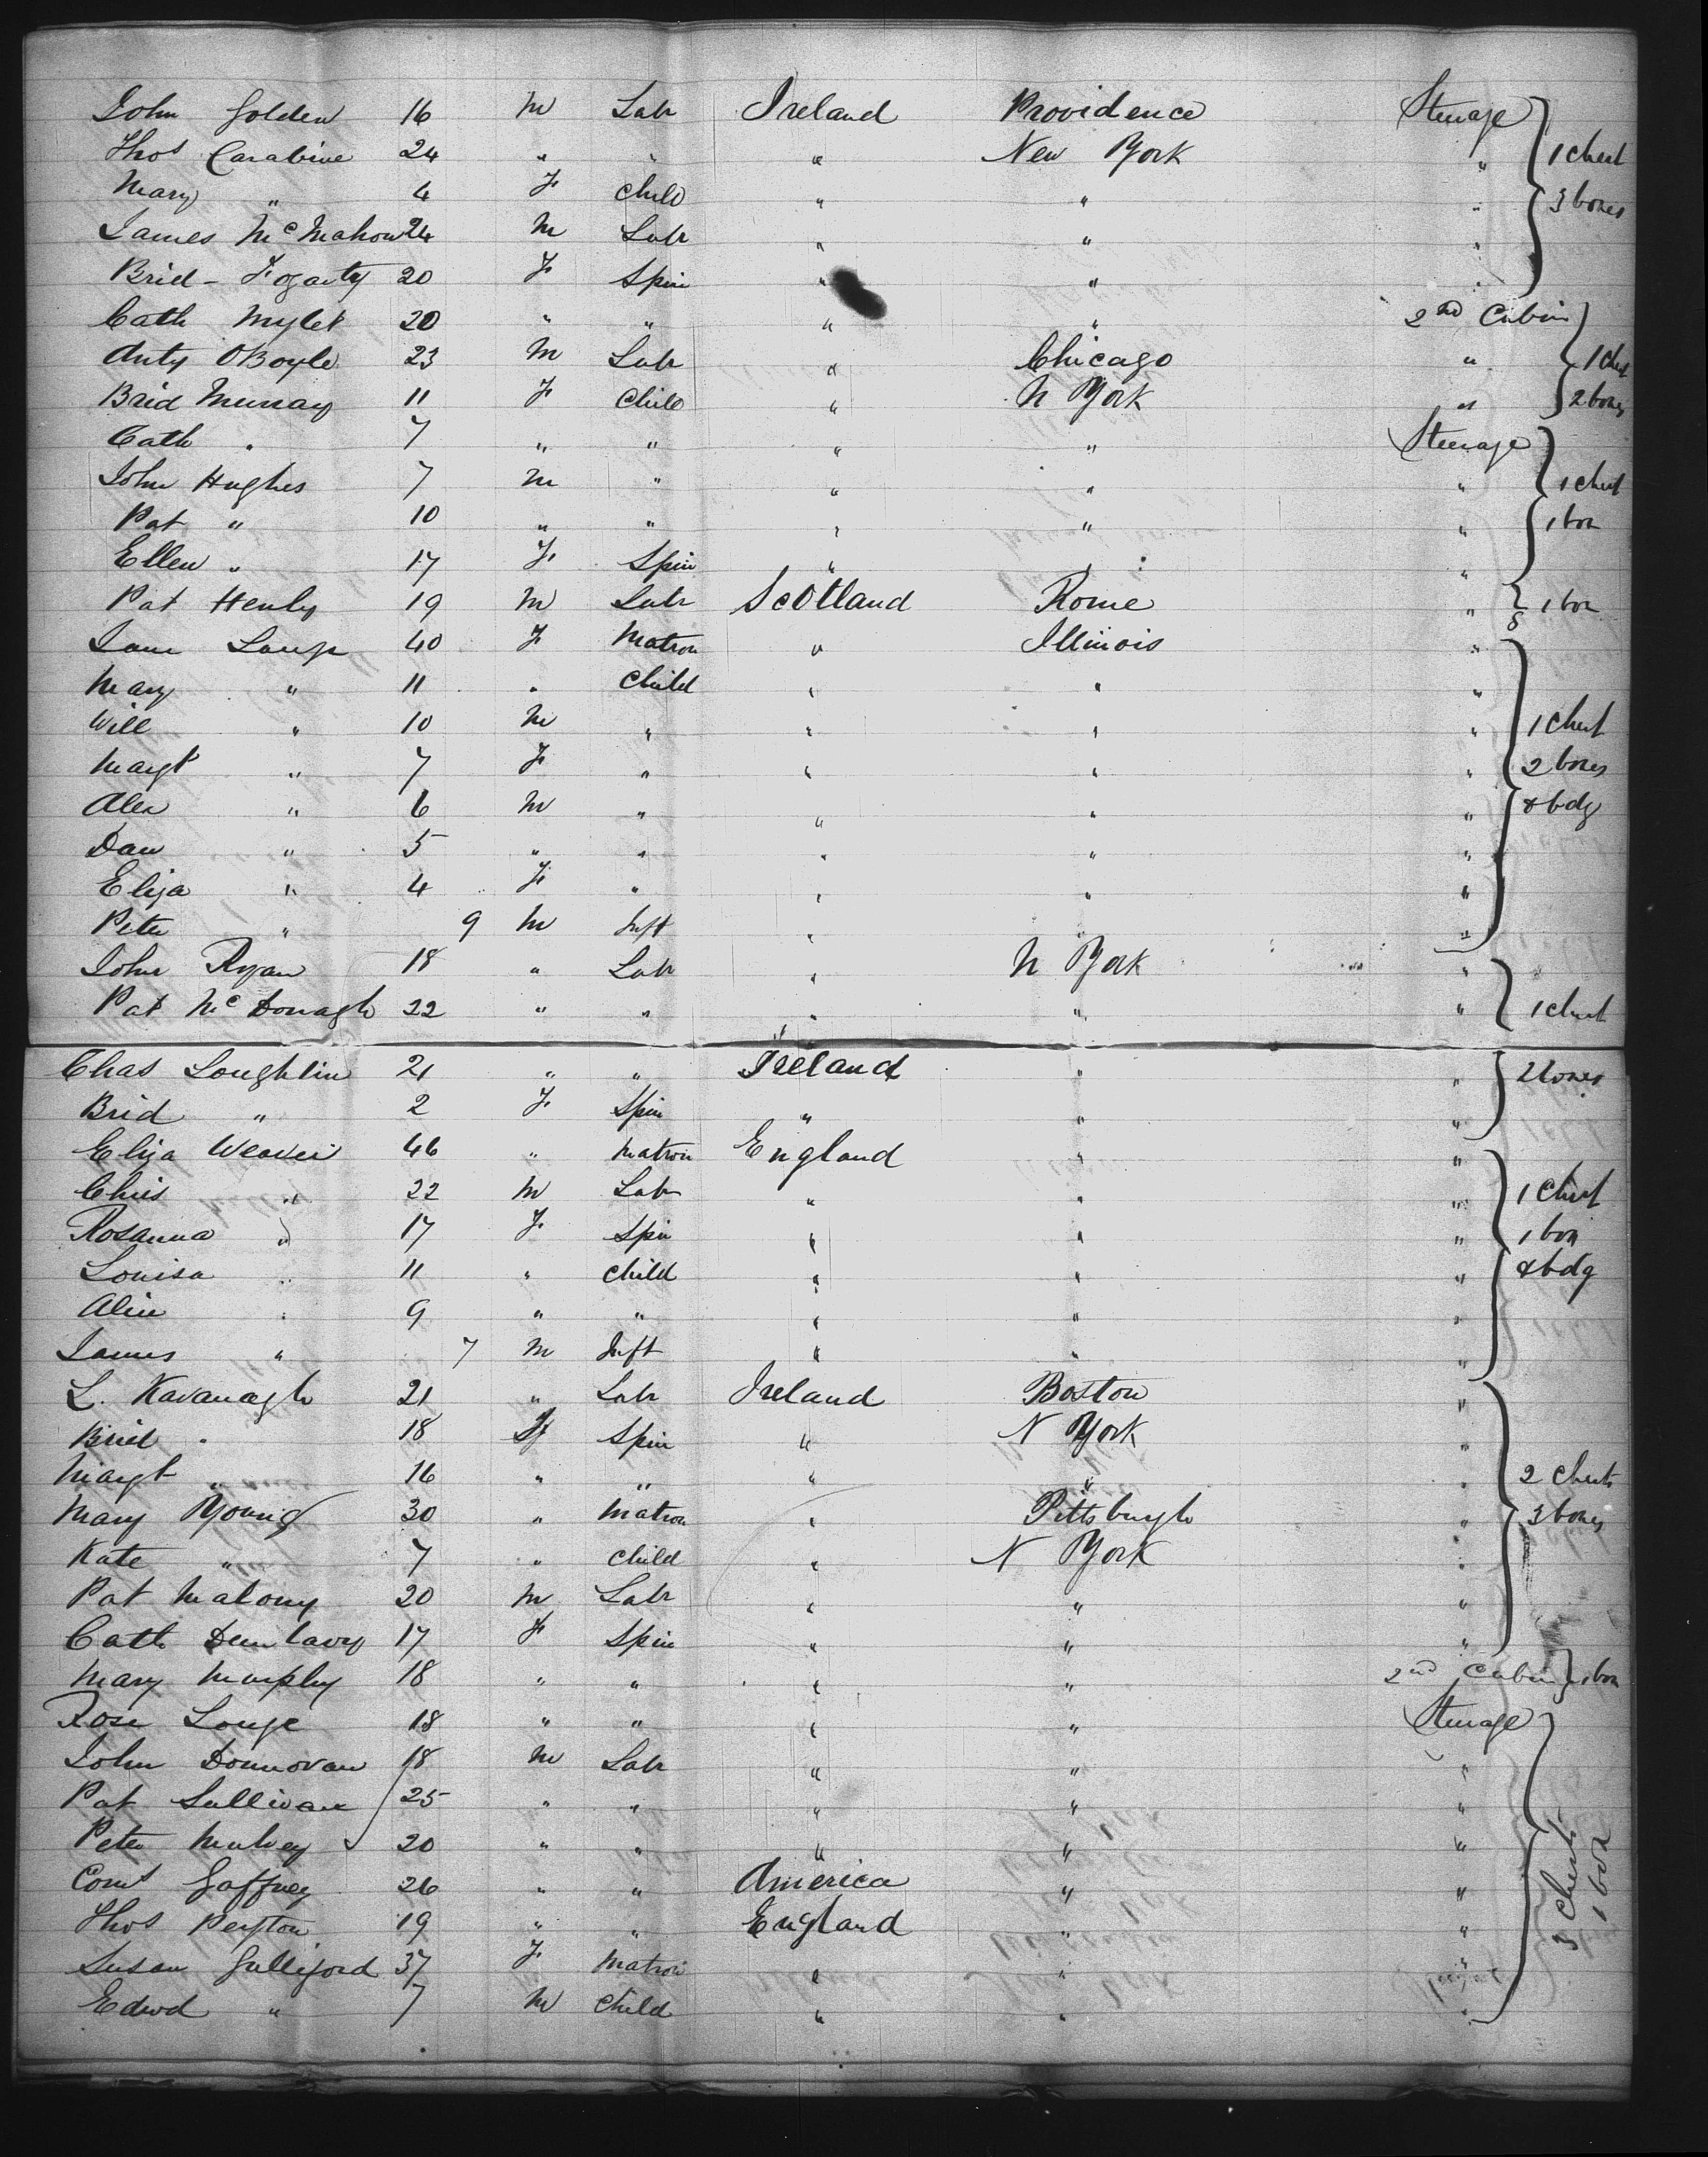 John Golden 16 m Labr Ireland Providence Steerage
Thos Carabine 24 " " " New York " 1 Chest
Mary " 4 F Child " " " 3 boxes
James McMahon 24 m Labr " " "
Brid - Fogarty 20 F Spin " " "
Cath Mylet 20 " " " " 2nd Cabin
Anty OBoyle 23 m Labr " Chicago " 1 Chest
Brid Murray 11 F Child " N York " 2 boxes
Cath " 7 " " " " Steerage
John Hughes 7 m " " " " 1 Chest
Pat " 10 " " " " " 1 box
Ellen " 17 F Spin " " "
Pat Henly 19 m Labr Scotland Rome " 1 box
Jane 40 F Matron " Illinois "
Mary " 11 " Child " " "
Will " 10 m " " " " 1 Chest
Margt " 7 F " " " " 2 boxes
Alex " 6 m " " " " & bdg
Dan " 5 " " " " "
Eliza " 4 F " " " "
Peter " 9 m Inft " " "
John Ryan 18 " Labr " N York "
Pat McDonagh 22 " " " " " 1 Chest
Chas Loughlin 21 " " Ireland " " 2 boxes
Brid " 2 F Spin " " "
Eliza Weaver 46 " Matron England " "
Chris " 22 m Labr " " " 1 Chest
Rosanna " 17 F Spin " " " 1 box
Louisa " 11 " Child " " " & bdg
Alice " 9 " " " " "
James " 7 m Inft " " "
L. Kavanagh 21 " Labr Ireland Boston "
Brid " 18 F Spin " N York "
Margt " 16 " " " " " 2 Chests
Mary Young 30 " Matron " Pittsburgh " 3 boxes
Kate " 7 " Child " N York "
Pat Malony 20 m Labr " " "
Cath Dunlavy 17 F Spin " " "
Mary Murphy 18 " " " " 2nd Cabin 1 box
Rose 18 " " " " Steerage
John Donnovan 18 m Labr " " "
Pat Sullivan 25 " " " " "
Peter Mulvey 20 " " " " "
Const Gaffney 26 " " America " " 3 Chests
Thos Peyton 19 " " England " " 1 box
Susan Gulliford 37 F Matron " " "
Edwd " 7 m Child " " "